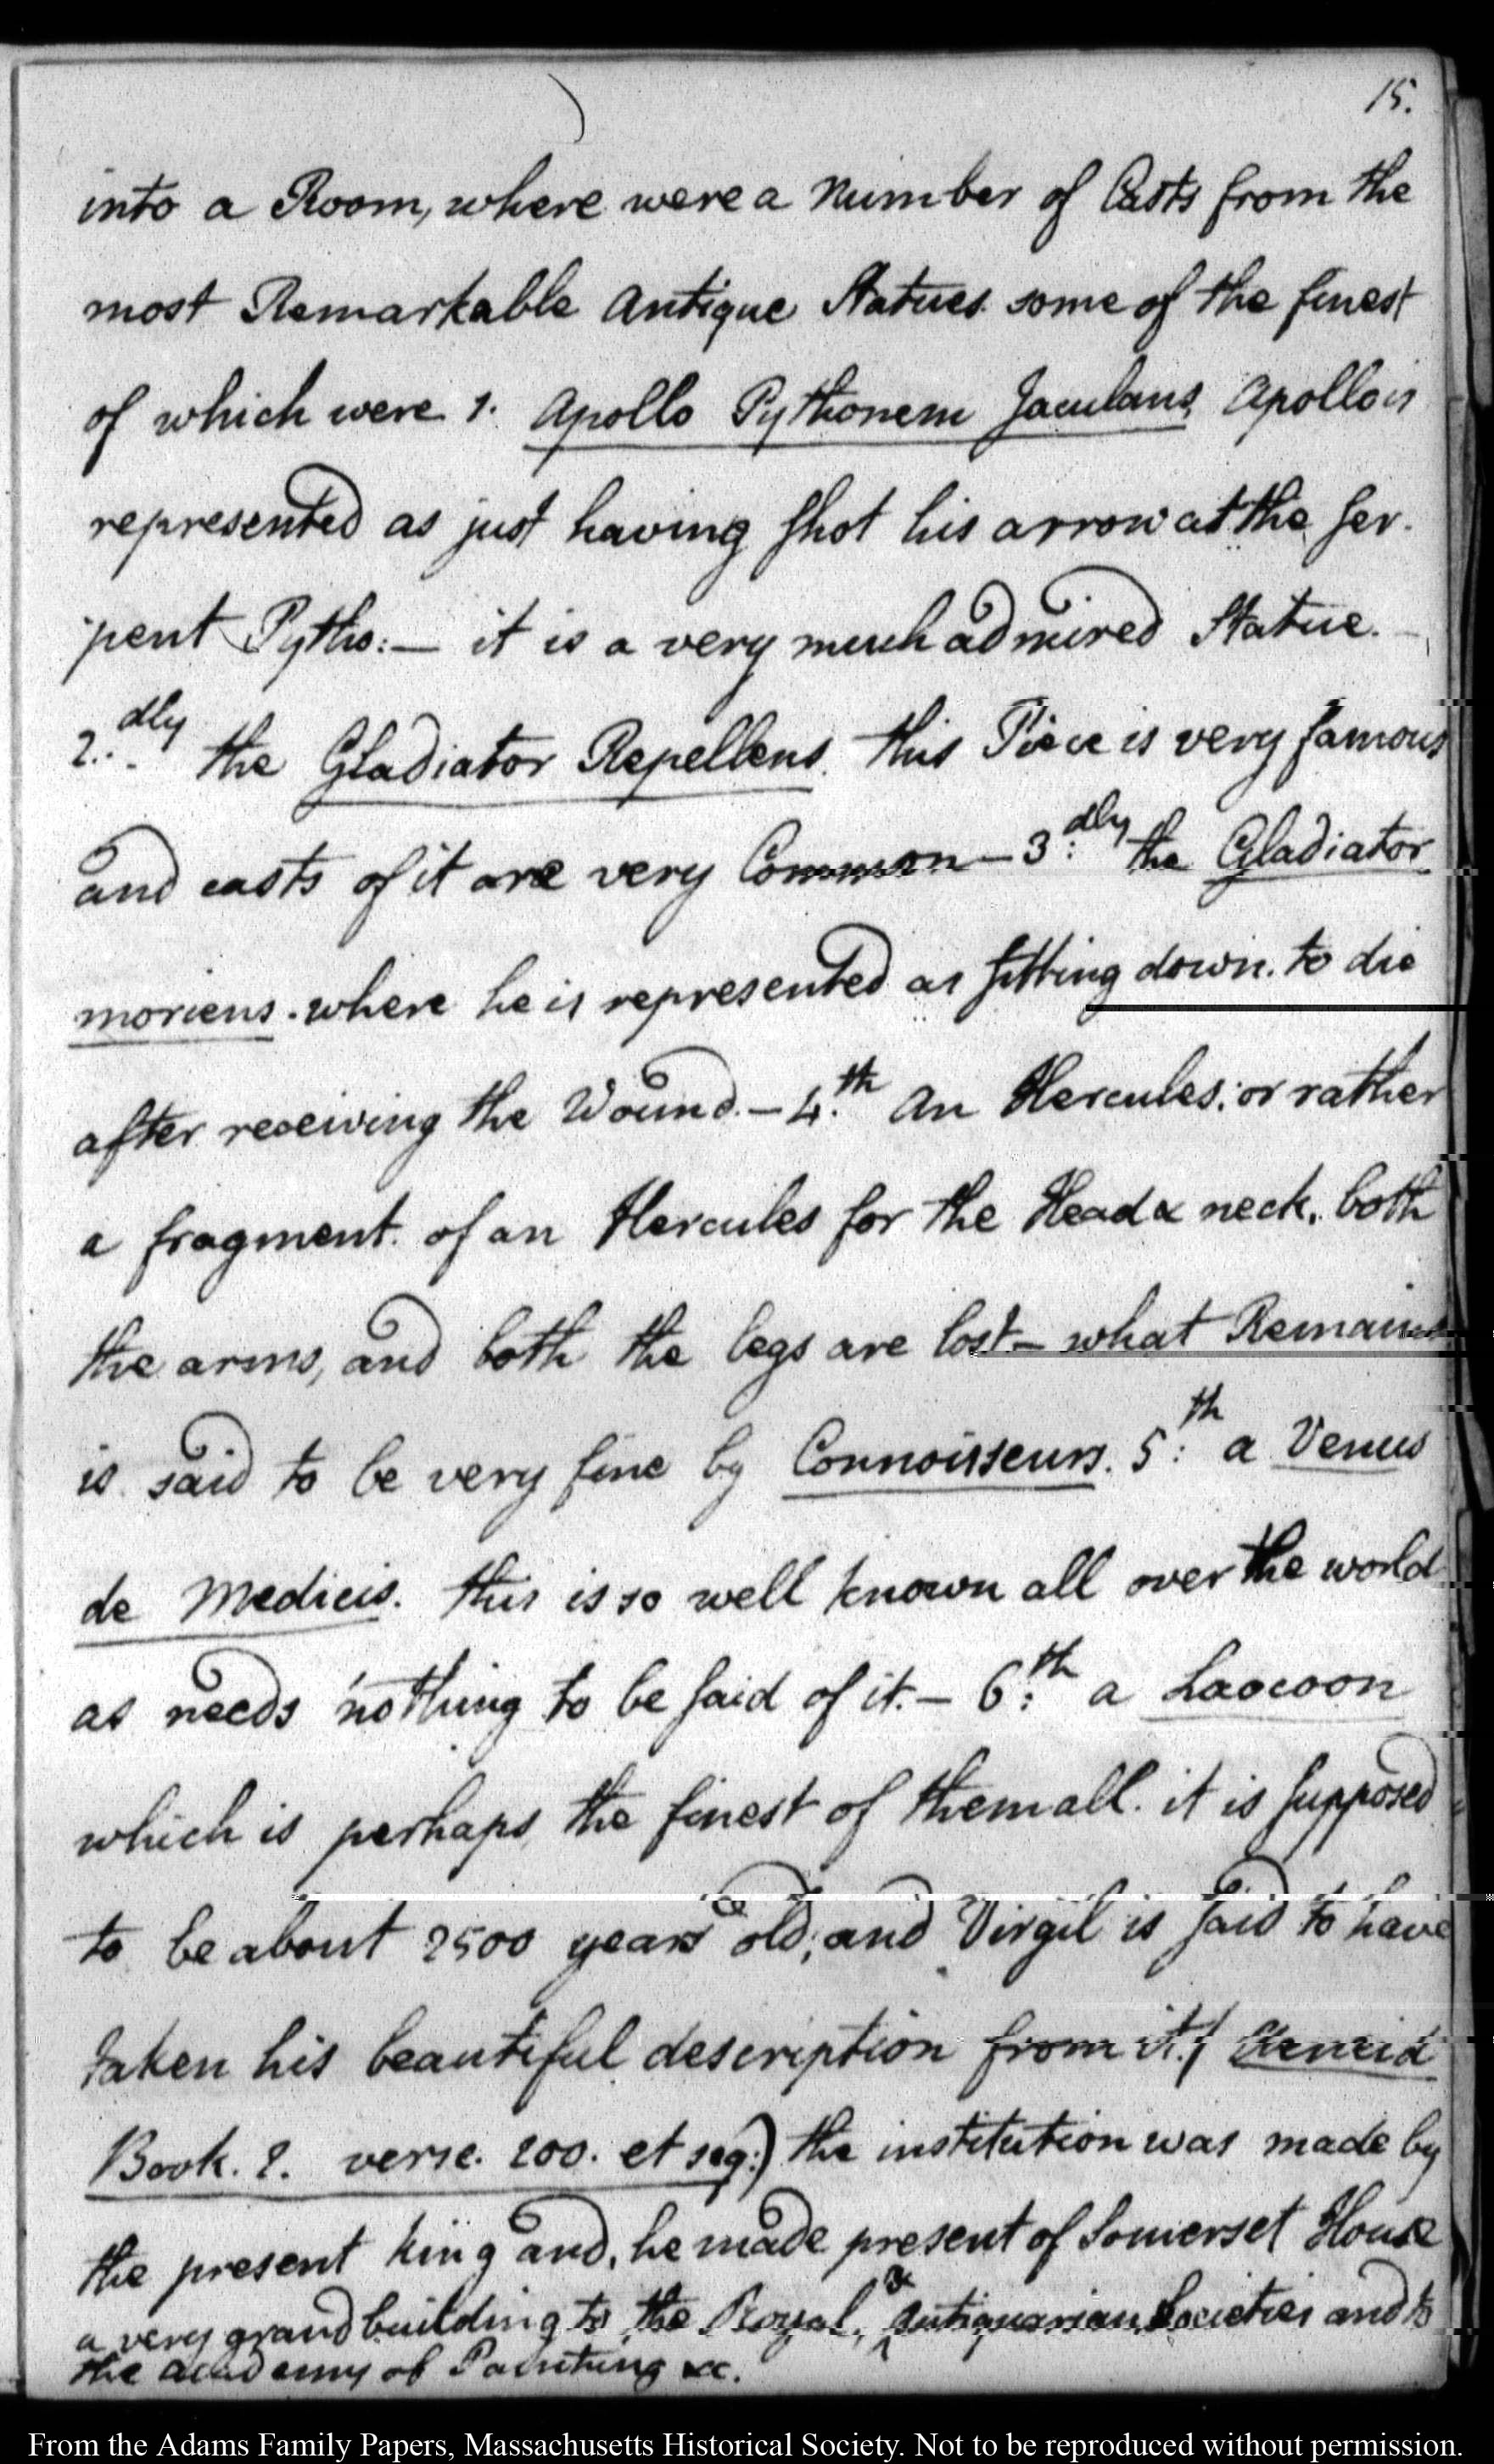 15.
into a Room, where were a Number of Casts from the
most Remarkable Antique Statues. some of the finest
of which were 1. Apollo Pythonem Jaculans, Apollo is
represented as just having shot his arrow at the ser-
pent Pytho:— it is a very much admired Statue.—
2.dly the Gladiator Repellens. this Piece is very famous
and casts of it are very Common— 3:dly the Gladiator
moriens. where he is represented as sitting down. to die
after receiving the Wound.— 4.th An Hercules; or rather
a fragment. of an Hercules for the Head & neck, both
the arms, and both the legs are lost— what Remains
is said to be very fine by Connoisseurs. 5:th a Venus
de Medicis. this is so well known all over the world
as needs nothing to be said of it.— 6:th a Laocoon
which is perhaps the finest of them all. it is supposed
to be about 2500 years old; and Virgil is said to have
taken his beautiful description from it. (Aeneid
Book. 2. verse. 200. et seq:) the institution was made by
the present king and, he made present of Somerset House
a very grand building to the Royal, & Antiquarian Societies and to
the academy of Painting &c.
From the Adams Family Papers, Massachusetts Historical Society. Not to be reproduced without permission.